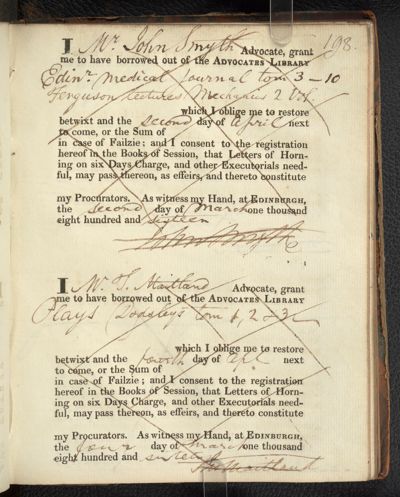 198.
I Mr. John Smyth Advocate, grant
me to have borrowed out of the ADVOCATES LIBRARY
Edinr. Medical Journal tom 3-10
Ferguson lectures Mechanics 2 Vol.
which I oblige me to restore
betwixt and the second day of April next
to come, or the Sum of
in case of Failzie; and I consent to the registration
hereof in the Books of Session, that Letters of Horn-
ing on six Days Charge, and other Executorials need-
ful, may pass thereon, as effeirs, and thereto constitute
my Procurators. As witness my Hand, at EDINBURGH,
the second day of March one thousand
eight hundred and sixteen
John Smyth
I Mr. T. Maitland Advocate, grant
me to have borrowed out of the ADVOCATES LIBRARY
Plays Dodsley's tom 1, 2 & 3
which I oblige me to restore
betwixt and the fourth day of Apl. next
to come, or the Sum of
in case of Failzie; and I consent to the registration
hereof in the Books of Session, that Letters of Horn-
ing on six Days Charge, and other Executorials need-
ful, may pass thereon, as effeirs, and thereto constitute
my Procurators. As witness my Hand, at EDINBURGH,
the four day of March one thousand
eight hundred and sixteen
Maitland